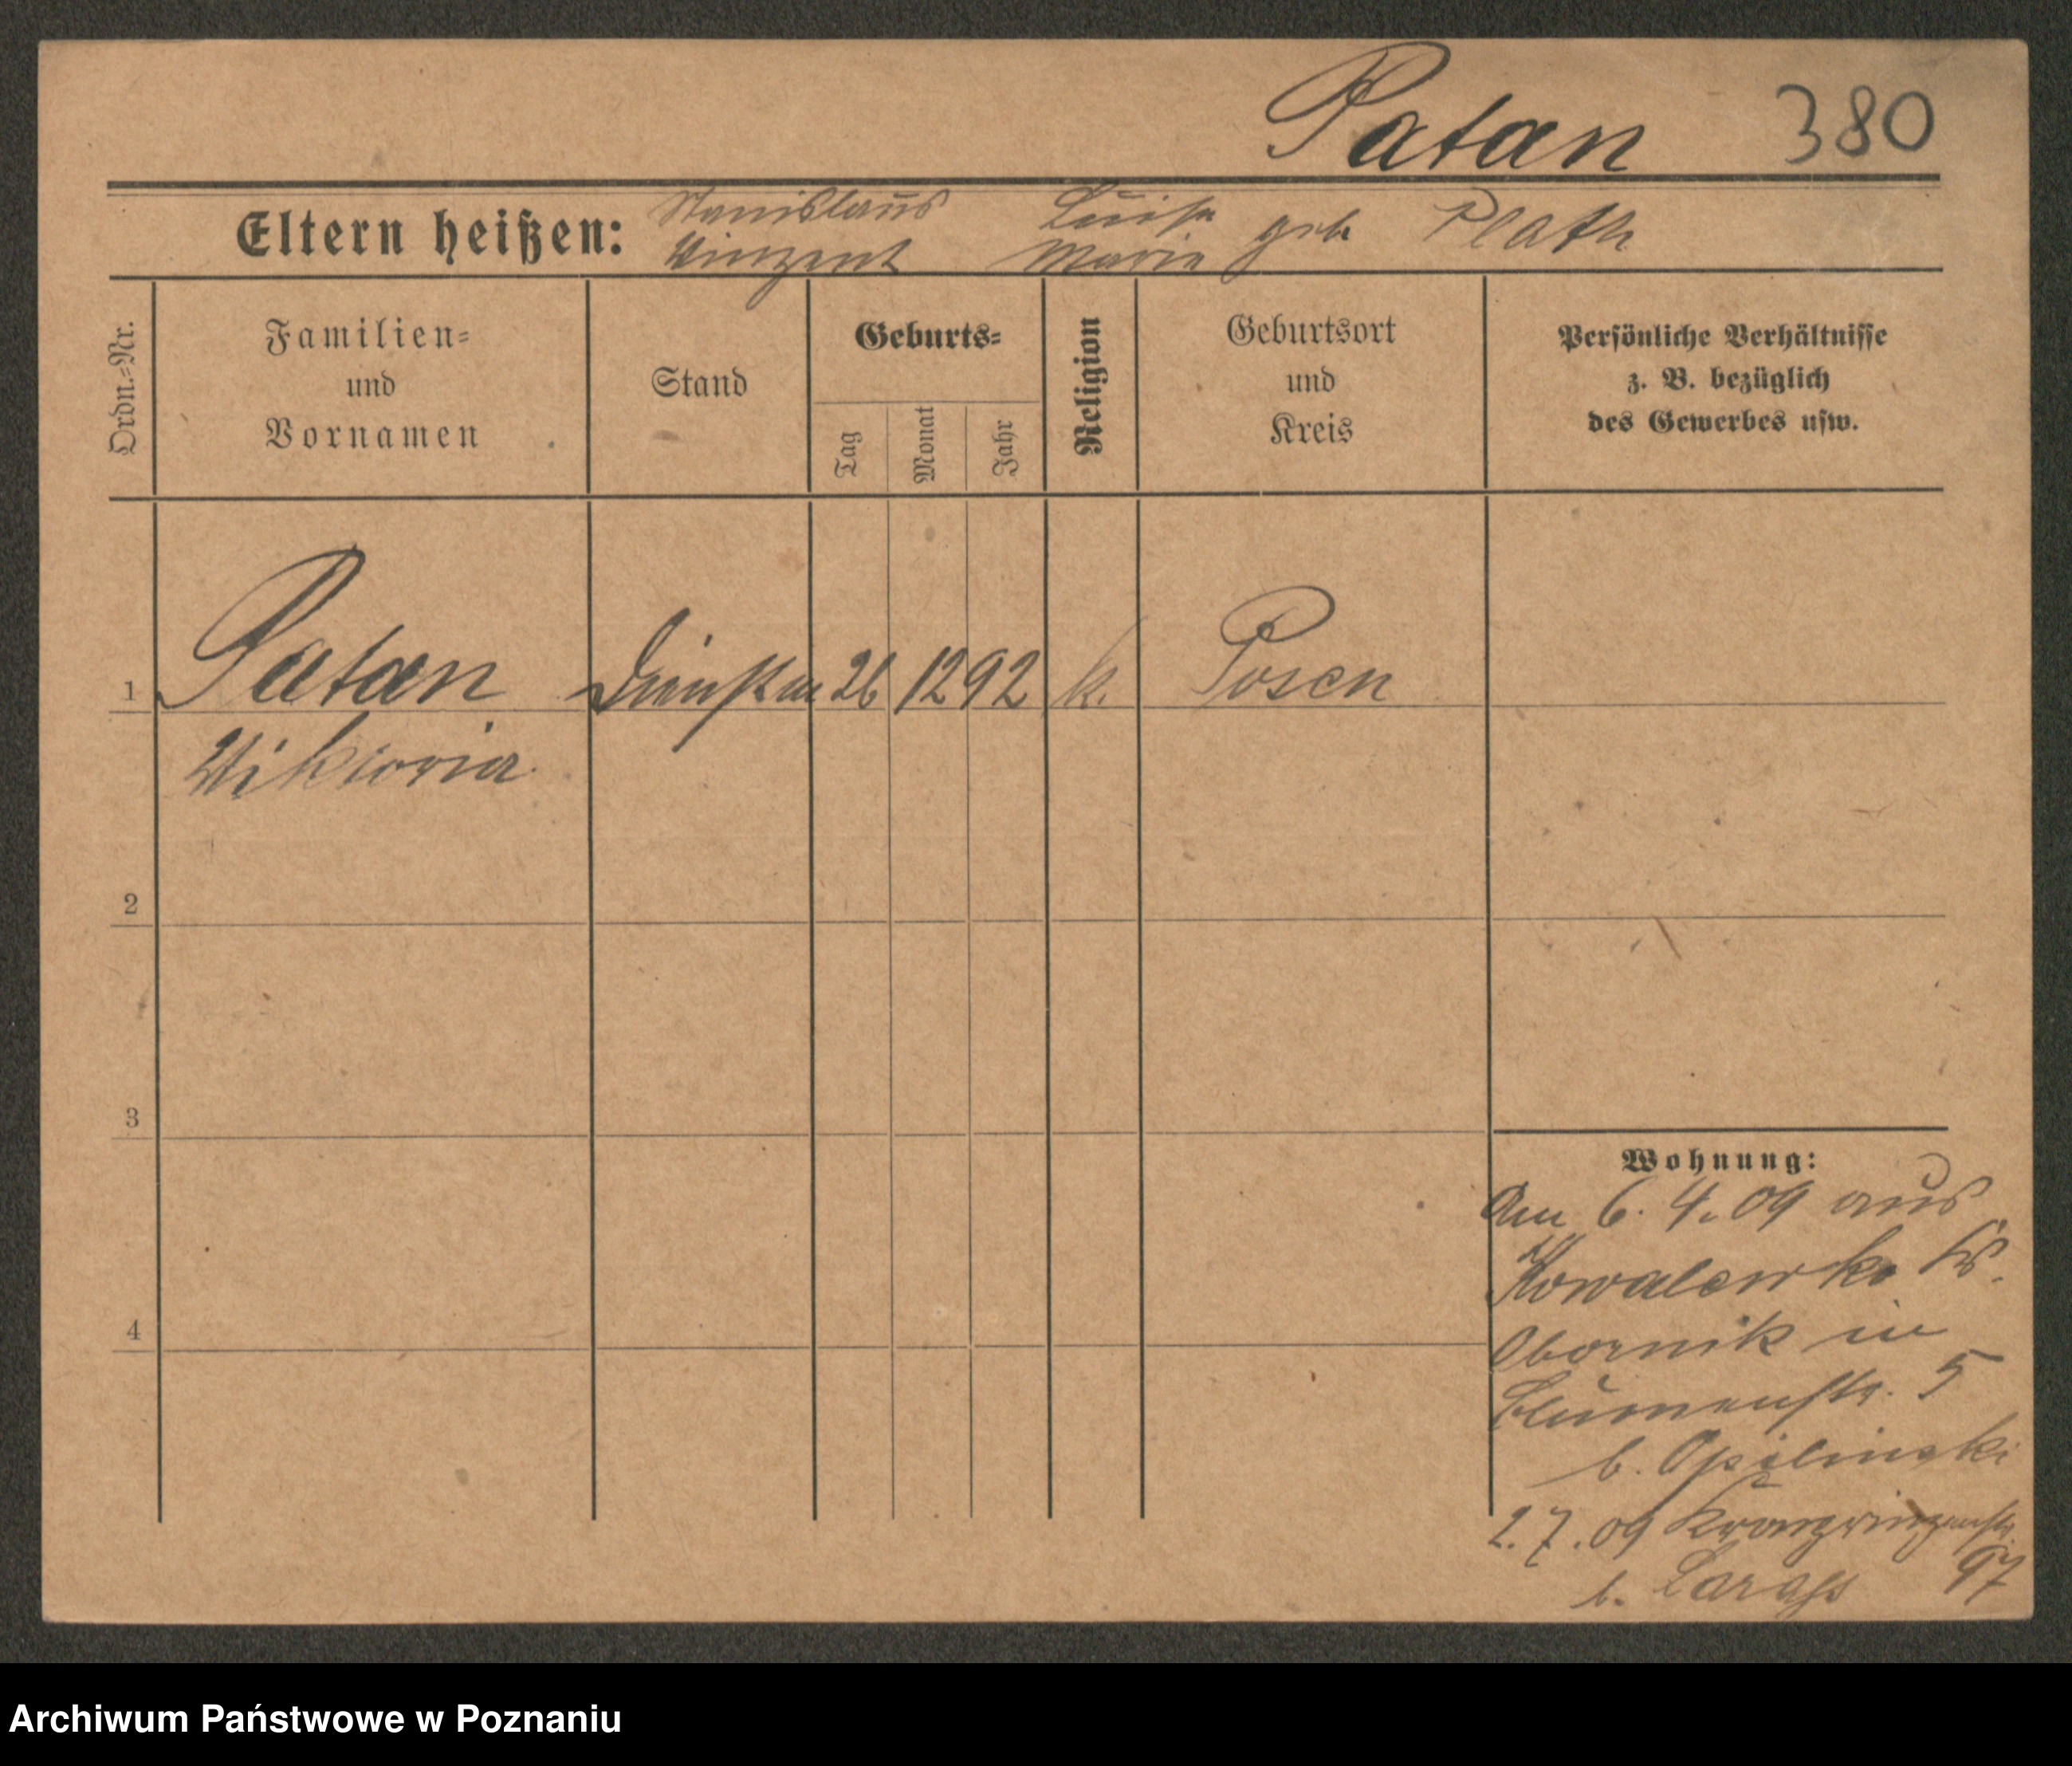 Patan 380
Eltern heißen: Stanislaus Luise geb Plath
Vinzent Marie
Ordn.=Nr.
Familien=
und
Vornamen
Stand
Geburts=
Tag
Monat
Jahr
Religion
Geburtsort
und
Kreis
Persönliche Verhältnisse
z. B. bezüglich
des Gewerbes usw.
1 Patan 26 12 92 k. Posen
Viktoria
2
3
4
Wohnung:
Am 6. 4. 09 aus
Kowalewko Kr.
Obornik in
Blumenstr. 5
b. Opilinski
2.7.09 Kronprinzenstr.
97
b.
Archiwum Państwowe w Poznaniu